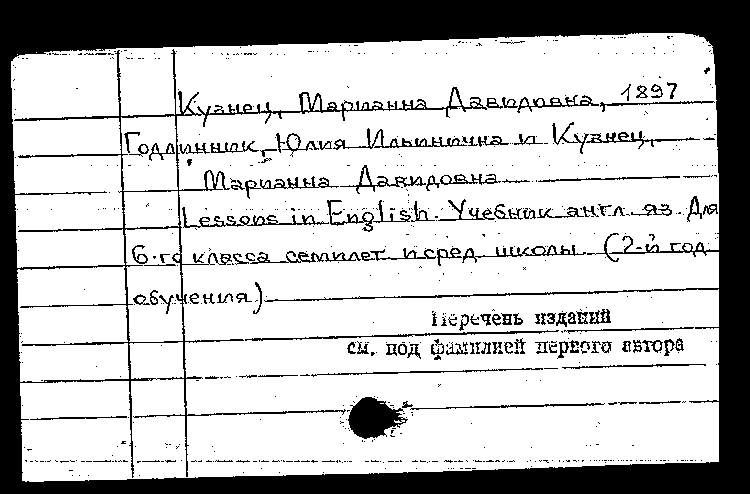 Кузнец, Марианна Давидовна, 1897
Годлинник, Юлия Ильинична и Кузнец,
Марианна Давидовна
Lessons in English. Учебник англ. яз. Для
6-го класса семилет. и сред. школы. (2-й год
обучения)
Перечень изданий
см. под фамилией первого автора